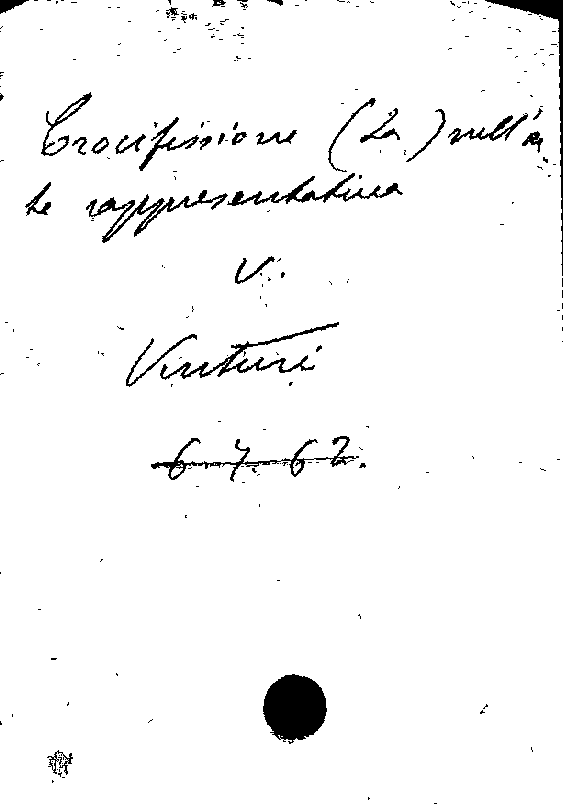 Crocifissione (La) nell'ar
te rappresentativa
V.
Venturi
6.7.62.